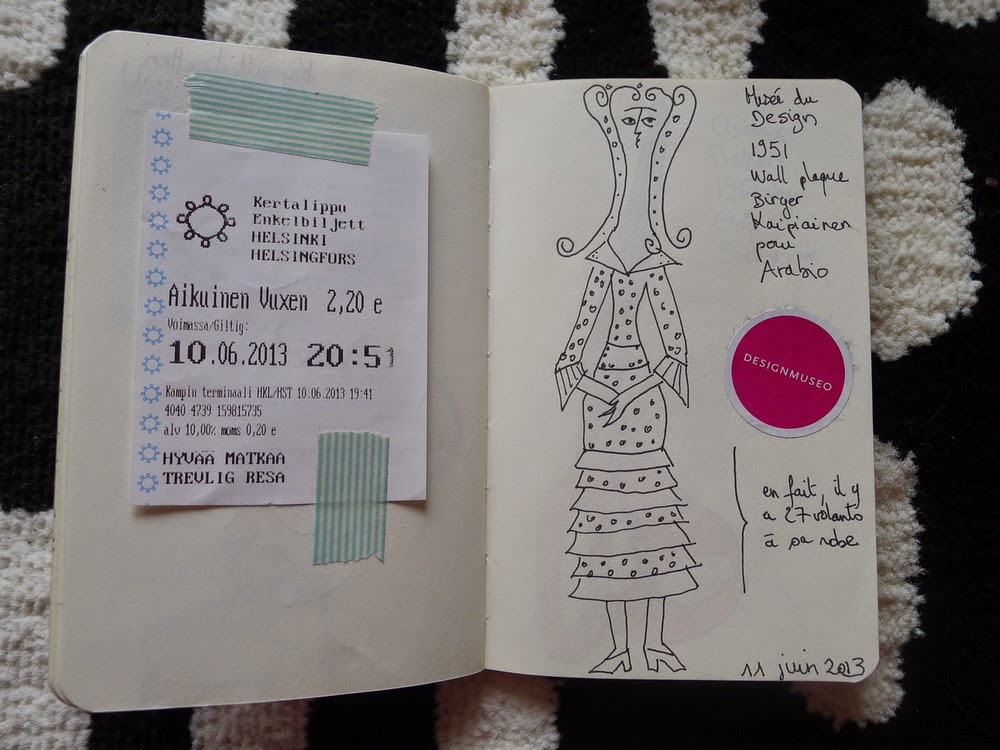 Kertalippu
Enkelbiljett
HELSINKI
HELSINGFORS
Aikuinen Vuxen 2,20 e
Voimassa/Giltig:
10.06.2013 20:51
Kampin terminaali HKL/HST 10.06.2013 19:41
4040 4739 159815735
alv 10,00% moms 0,20 e
HYVÄÄ MATKAA
TREVLIG RESA
Musée du
Design
1951
Wall plaque
Birger
Kaipiainen
pour
Arabia
DESIGNMUSEO
en fait, il y
a 27 volants
à sa robe
11 juin 2013